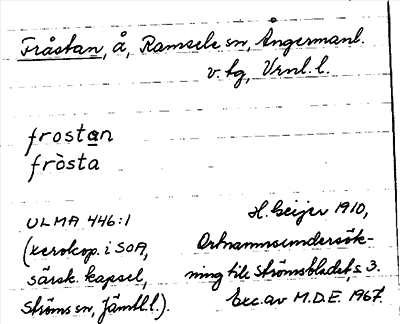 Fråstan, å, Ramsele sn, Ångermanl.
v. tg, Vrnl. l.
frostan
fròsta
ULMA 446:1
(xerokop. i SOA,
särsk. kapsel,
Ströms sn, Jämtl. l.).
H. Geijer 1910,
Ortnamnsundersök-
ning till Strömsbladet, s. 3.
Exc. av M.D.E. 1967.